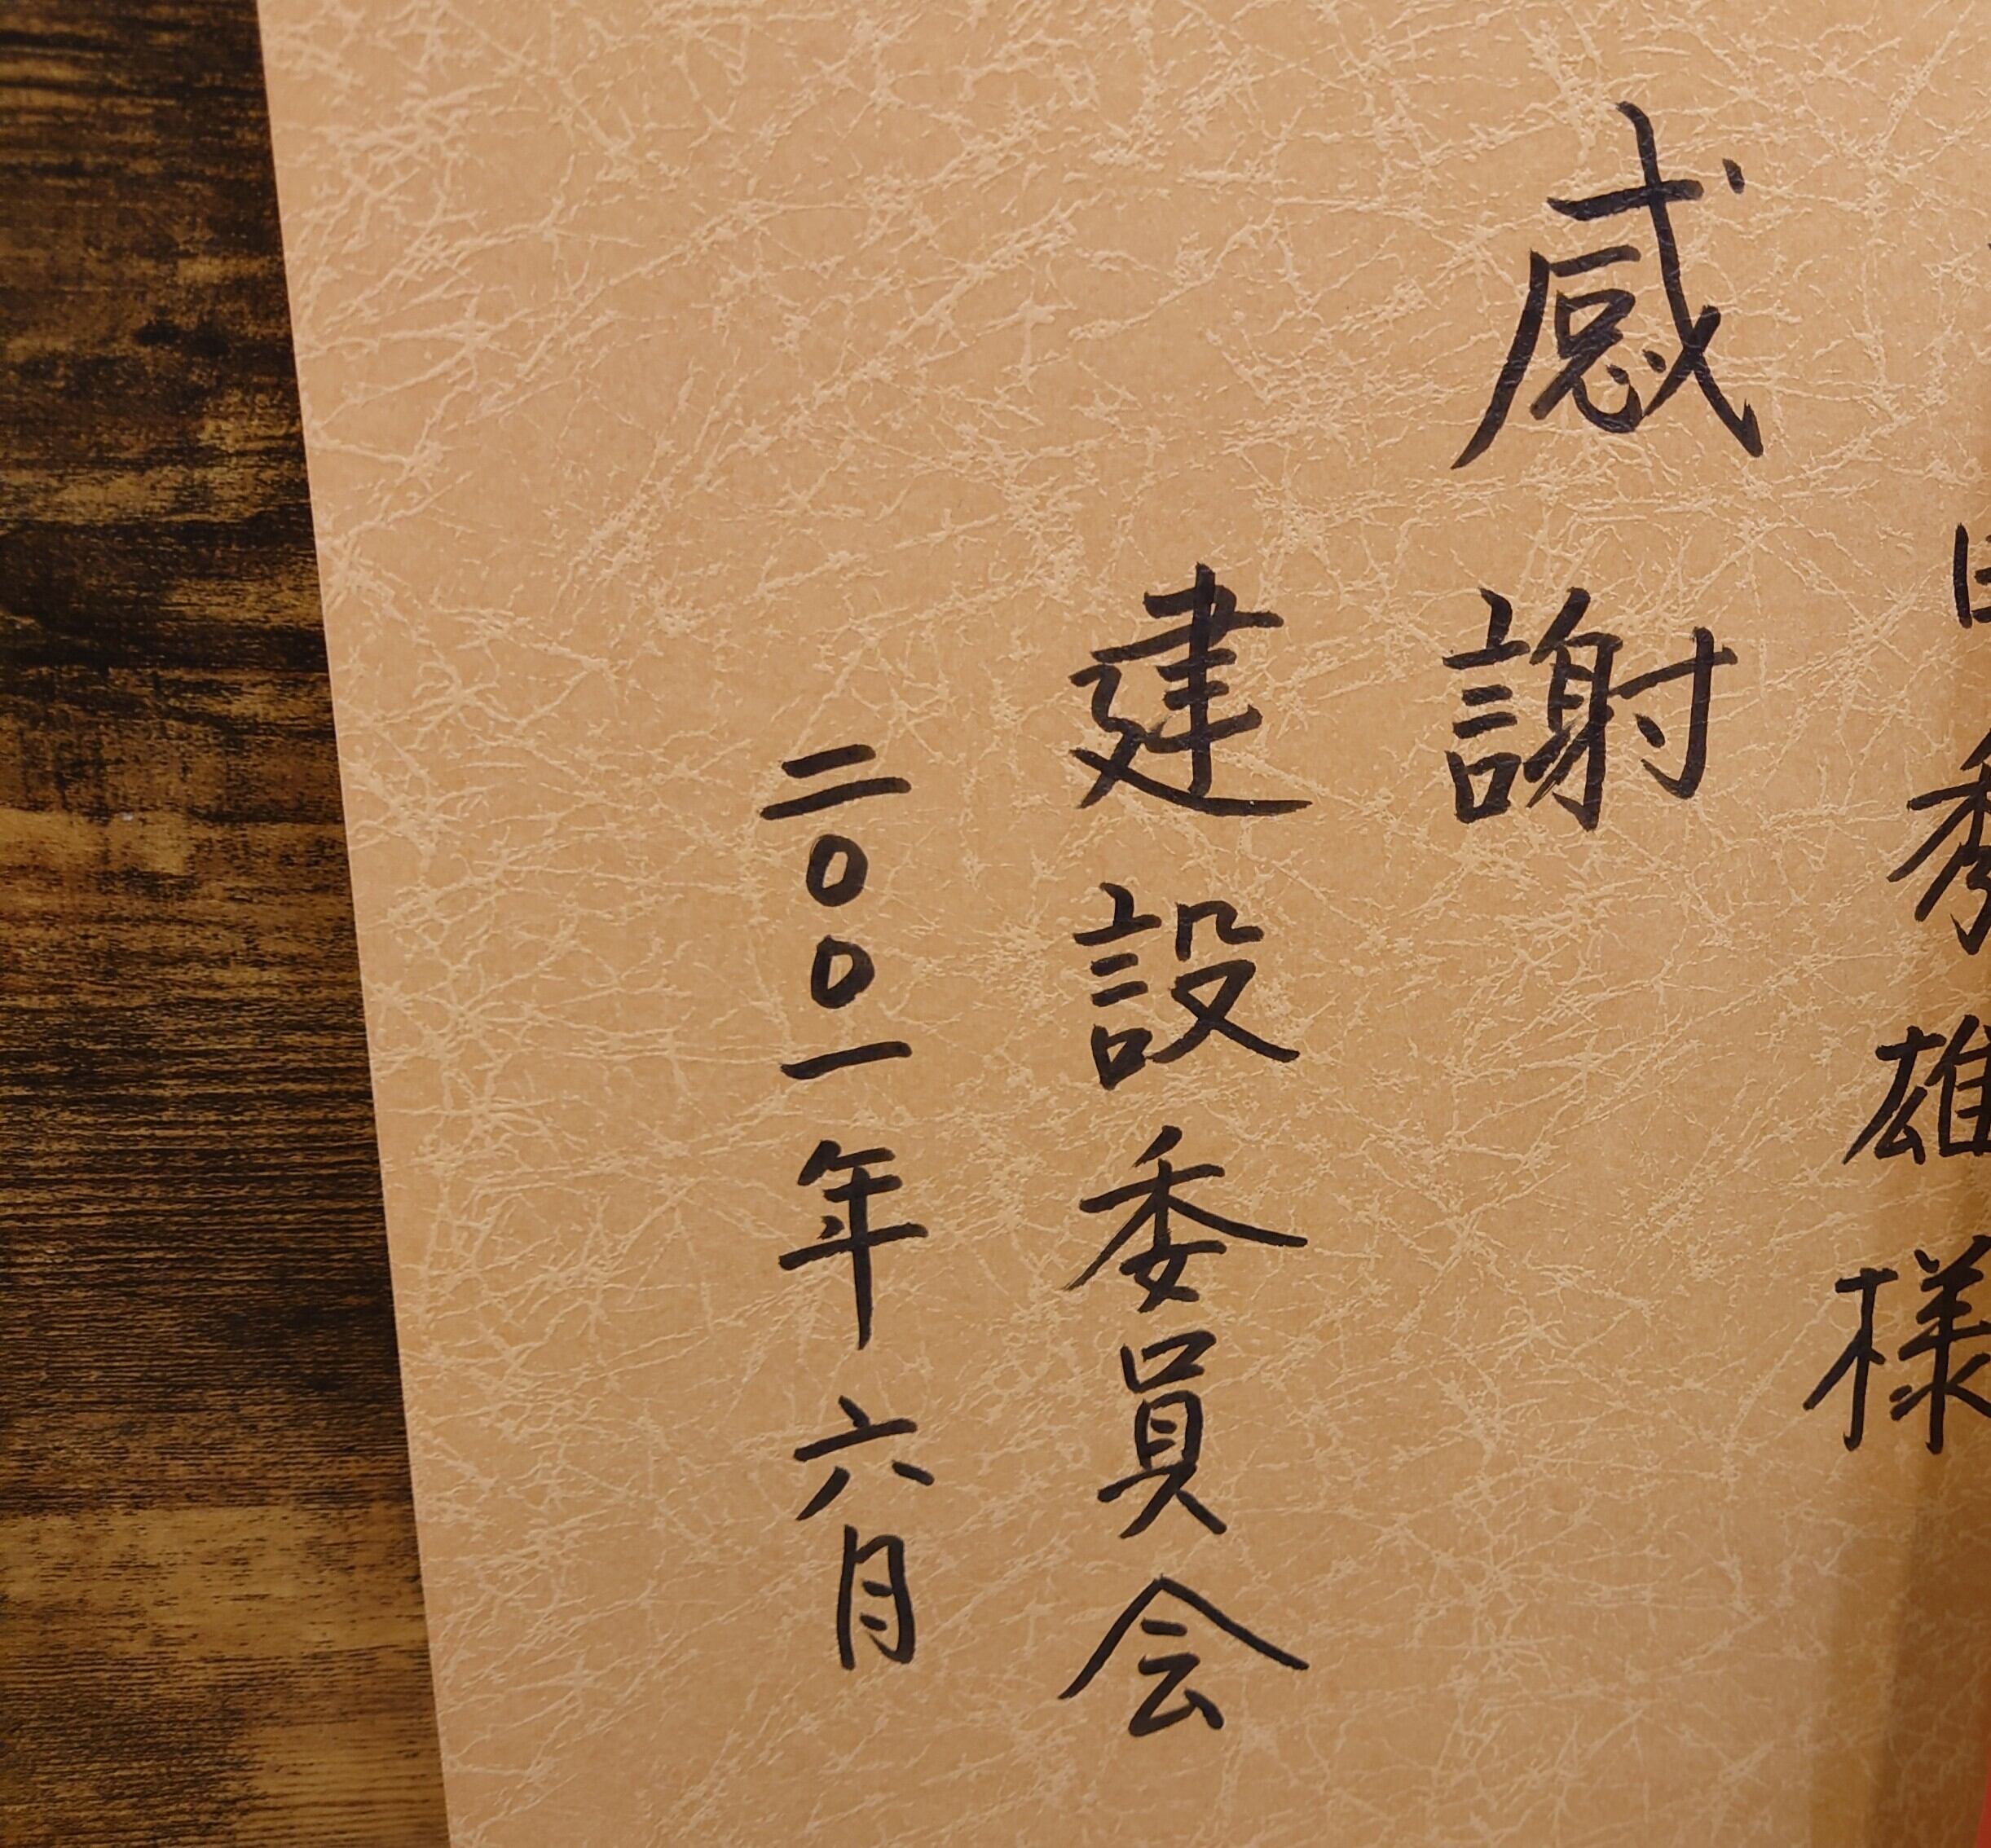 秀雄様
感謝
建設委員会
二〇〇一年六月